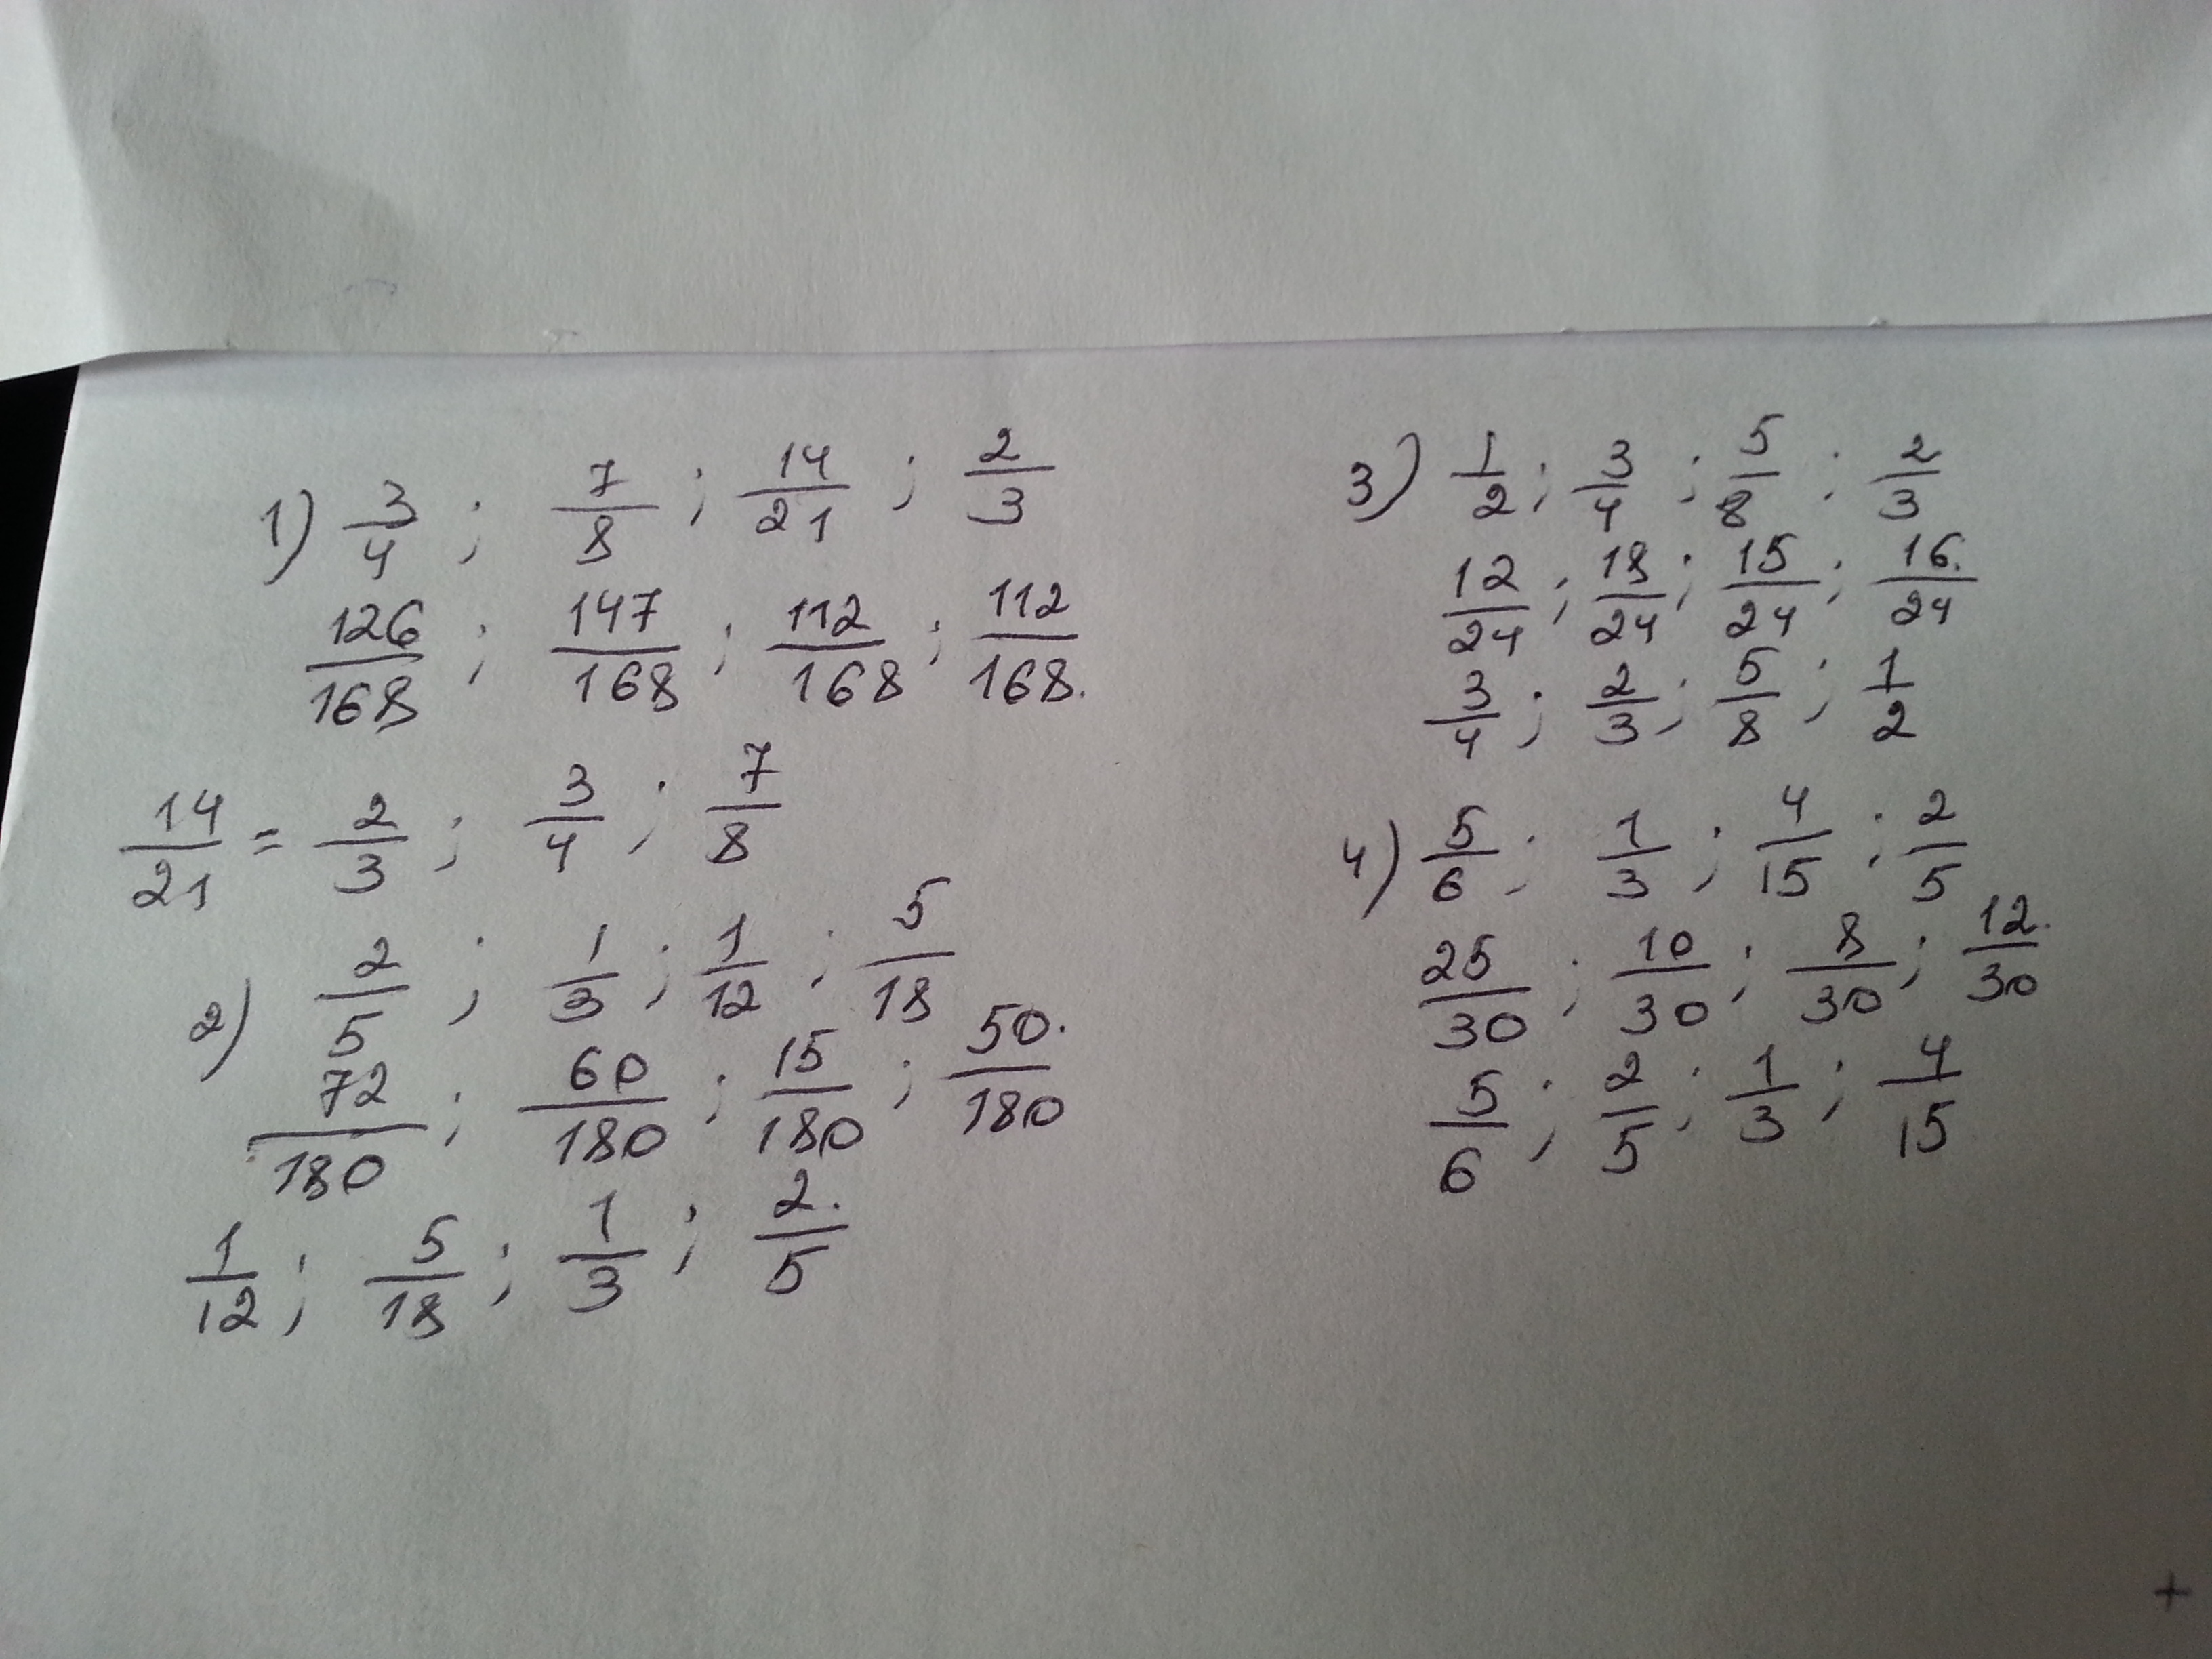 1) 3/4 ; 7/8 ; 14/21 ; 2/3
126/168 ; 147/168 ; 112/168 ; 112/168.
14/21 = 2/3 ; 3/4 ; 7/8
2) 2/5 ; 1/3 ; 1/12 ; 5/18
72/180 ; 60/180 ; 15/180 ; 50./180
1/12 ; 5/18 ; 1/3 ; 2./5
3) 1/2 ; 3/4 ; 5/8 ; 2/3
12/24 ; 18/24 ; 15/24 ; 16./24
3/4 ; 2/3 ; 5/8 ; 1/2
4) 5/6 ; 1/3 ; 4/15 ; 2/5
25/30 ; 10/30 ; 8/30 ; 12./30
5/6 ; 2/5 ; 1/3 ; 4/15
+